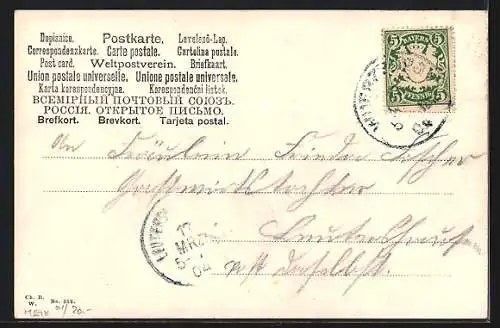 Dopisnice. Postkarte. Levelező-Lap.
Correspondenzkarte. Carte postale. Cartolina postale.
Post card. Weltpostverein. Briefkaart.
Union postale universelle. Unione postale universale.
Karta korespondencyjna. Korespondenčni listek.
ВСЕМІРНЫЙ ПОЧТОВЫЙ СОЮЗЪ.
РОССІЯ. ОТКРЫТОЕ ПИСЬМО.
Brefkort. Brevkort. Tarjeta postal.
BAYERN
5 5
5 PFENNIG 5
An Fräulein Frieda Fischer
Gastwirtstochter
Leutershausen
post daselbst.
17
MRZ
04
Ch. R.
W. No. 355.